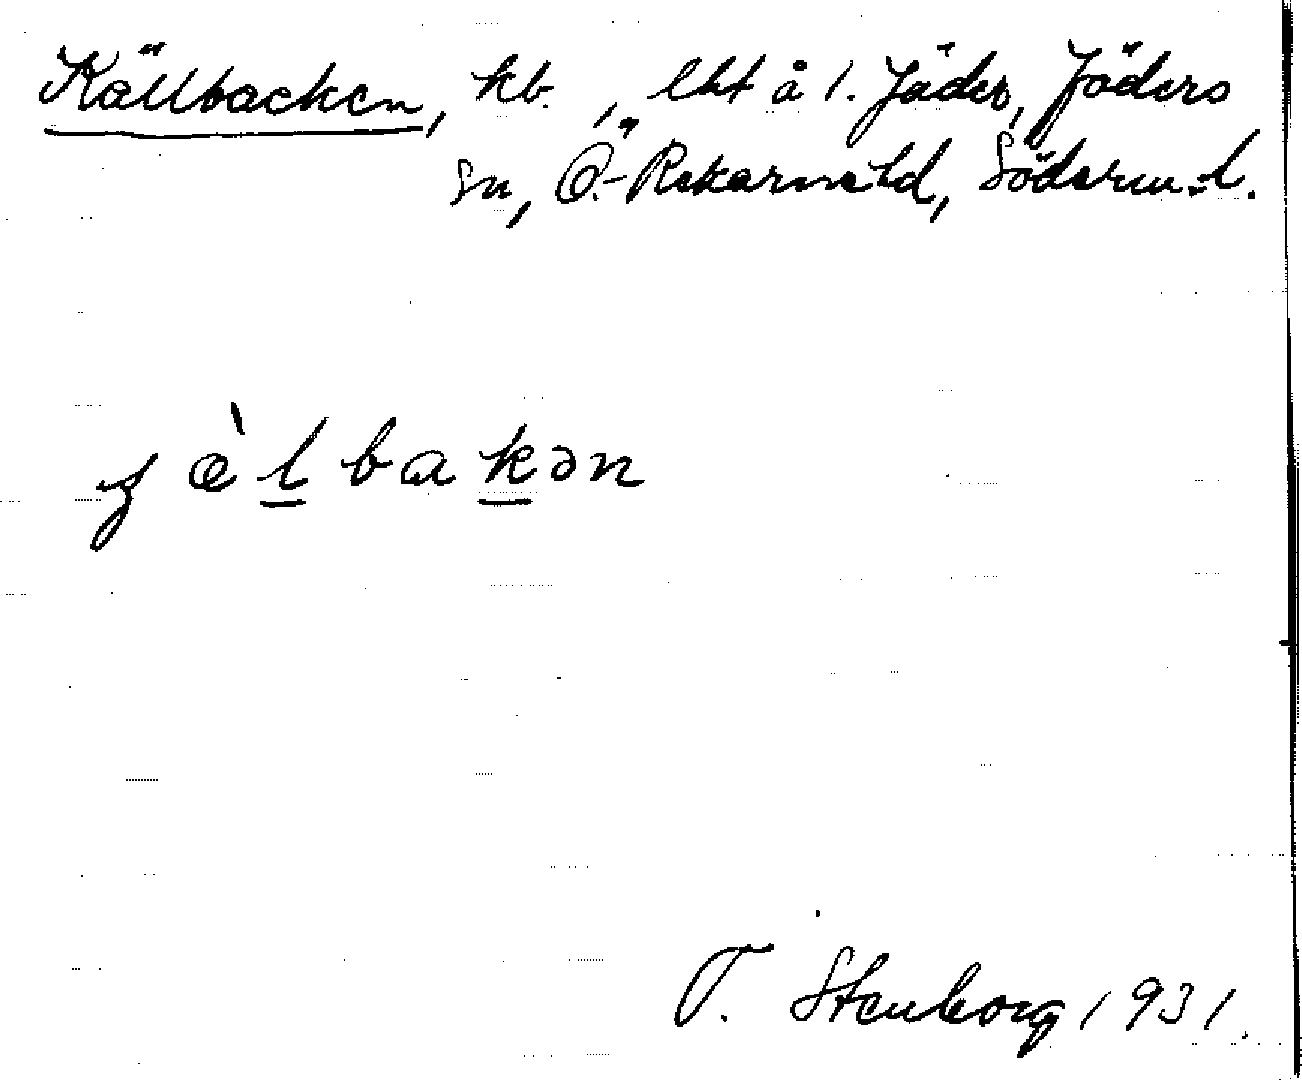 Källbacken, kb., lht å l. Jäder, Jäders
sn, Ö.-Rekarne hd, Söderm. l.
ʒ æ̀ l̲ b a k̲ ə n
T. Stenborg 1931.